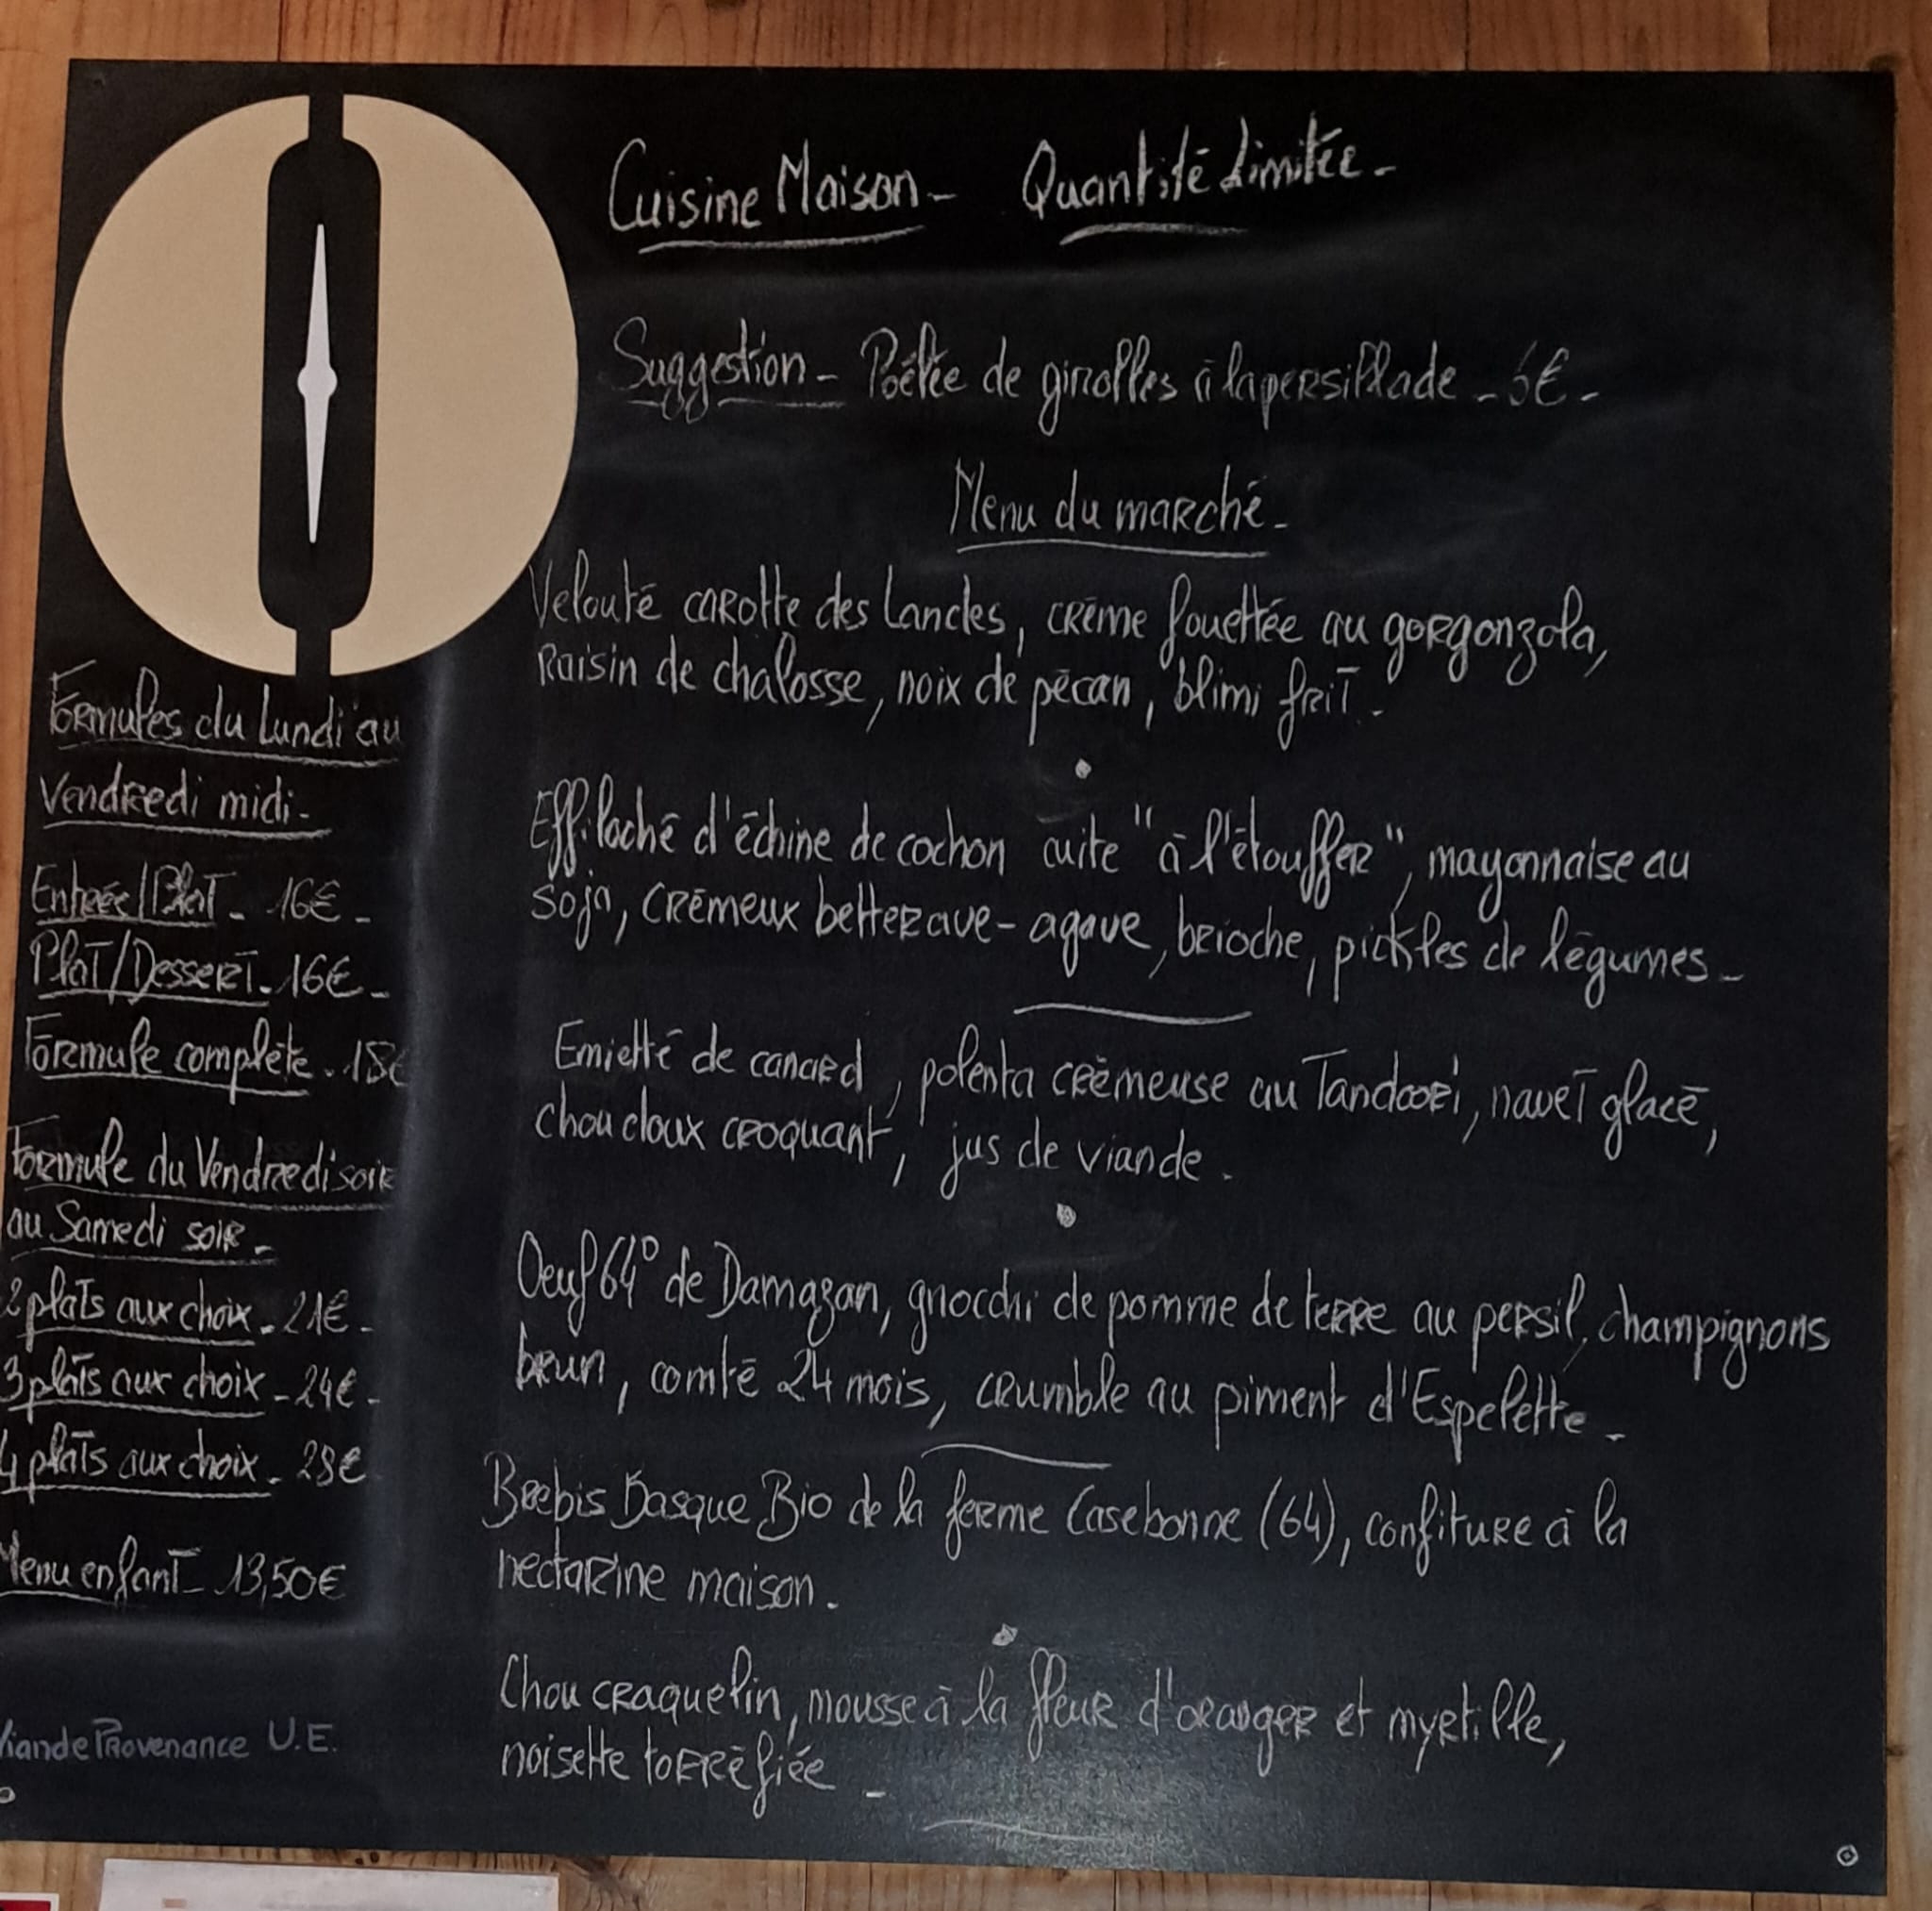 Cuisine Maison - Quantité Limitée -
Suggestion - Poêlée de girolles à la persillade - 6€ -
Menu du marché -
Velouté carotte des Landes, crème fouettée au gorgonzola,
Raisin de chalosse, noix de pécan, blimi frit.
Effiloché d'échine de cochon cuite "à l'étouffer", mayonnaise au
soja, crémeux betterave-agave, brioche, pickles de légumes -
Emietté de canard, polenta crèmeuse au Tandoori, navet glacé,
chou doux croquant, jus de viande.
Oeuf 64° de Damazan, gnocchi de pomme de terre au persil, champignons
brun, comté 24 mois, crumble au piment d'Espelette -
Brebis Basque Bio de la ferme Casebonne (64), confiture à la
nectarine maison.
Chou craquelin, mousse à la fleur d'oranger et myrtille,
noisette torréfiée -
Formules du Lundi au
Vendredi midi -
Entrée/Plat - 16€ -
Plat/Dessert - 16€ -
Formule complète - 18€
Formule du Vendredi soir
au Samedi soir -
2 plats aux choix - 21€ -
3 plats aux choix - 24€ -
4 plats aux choix - 28€
Menu enfant - 13,50€
Viande Provenance U.E.